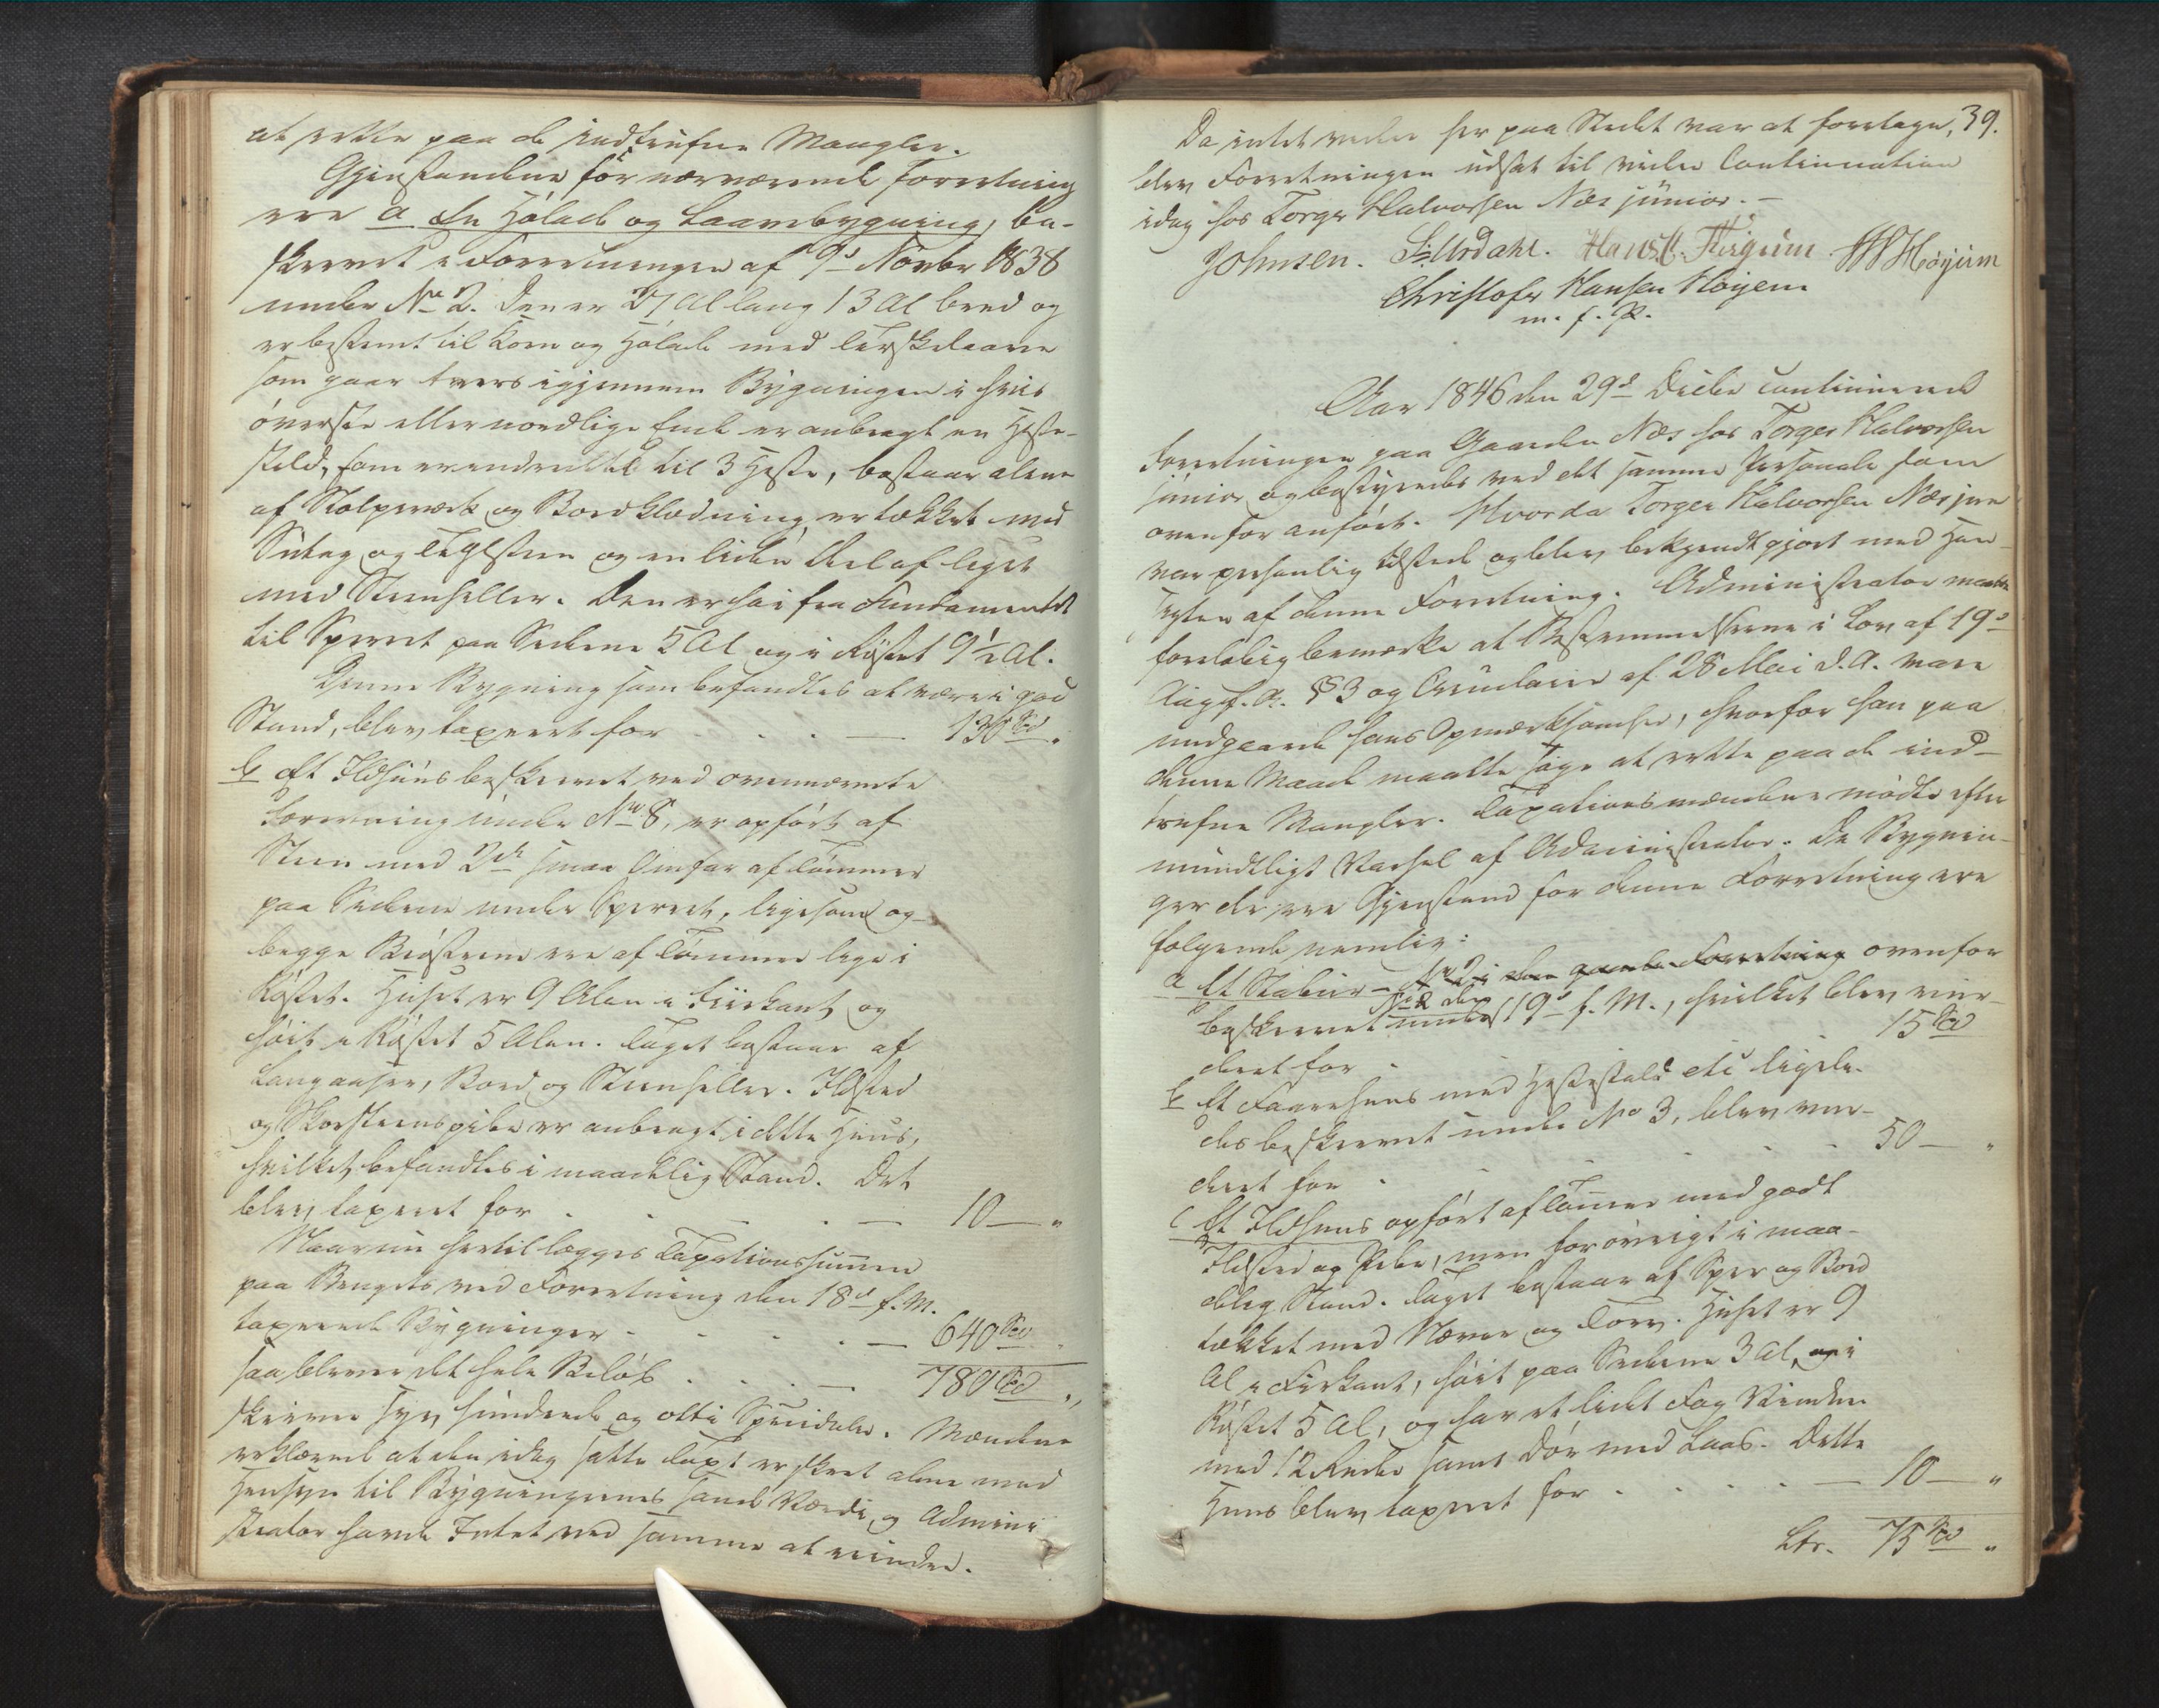 at rette paa de indtrufne Mangler.
Gjenstandene for nærværende Forretning
ere a En Hölade og Laavebygning, be-
skrevet i Forretningen af 9de Novbr 1838
under No 2. Den er 27 Al lang 13 Al bred og
er bestemt til Korn og Hölade med Terskelaave
som gaar tvers igjennem Bygningen i hvis
överste eller nordlige Ende er anbragt en Heste-
stald, som er indrettet til 3 Heste, bestaar alene
af Stolpeværk og Bordklædning, er tækket med
Sutag og Teglsteen og en liden Deel af taget
med Steenheller. Den er höi fra Fundamentet
til Sperret paa Siderne 5 Al og i Röstet 9½ Al.
Denne Bygning som befandtes at være i god
Stand, blev taxeret for . . . — 130 Spd „
b Et Ildhuus beskrevet ved ovennævnte
Forretning under No 8, er opført af
Steen med 2de smaa Omfar af Tömmer
paa Siderne under Sperret, ligesom og-
begge Bröstene ere af Tömmer lige i
Röstet. Huset er 9 Alen i Fiirkant og
höit i Röstet 5 Alen. Taget bestaar af
Langaaser, Bord og Steenheller. Ildsted
og Skorsteenspibe er anbragt i dette Huus,
hvilket befandtes i maadelig Stand. Det
blev taxeret for . . . . — 10 — „
Naar nu hertil lægges Taxationssummen
paa Brugets ved Forretning den 18de f. M.
taxerede Bygninger . . . — 640 Spd „
saa bliver det hele Belöb . . . — 780 Spd „
skriver syv hundrede og otti Speciedaler. Mændene
erklærede at den idag satte Taxt er skeet alene med
Hensyn til Bygningernes sande Værdi, og Admini
strator havde Intet ved samme at erindre.
Da intet videre her paa Stedet var at foretage, 39.
blev Forretningen udsat til videre Continuation
idag hos Torger Halvorsen Næs junior. —
Johnsen. S: Urdahl. Hans Flugeim H Höyum
Christofer Hansen Höyem
m. f. P.
Aar 1846 den 29de Decbr continueredes
Forretningen paa Gaarden Næs hos Torger Halvorsen
junior og bestyredes ved det samme Personale som
ovenfor anfört. Hvorda Torger Halvorsen Næs jun
var personlig tilstede og blev bekjendtgjort med Hen-
sigten af denne Forretning. Administrator maatte
foreløbig bemærke at Bestemmelserne i Lov af 19de
Aug. f. A. § 3 og Circulaire af 28 Mai d. A. vare
undgaaede hans Opmærksomhed, hvorfor han paa
denne Maade maatte söge at rette paa de ind-
trufne Mangler. Taxationsmændene mödte efter
mundtligt Varsel af Administrator. De Bygnin-
ger der ere Gjenstand for denne Forretning ere
følgende nemlig:
a Et Stabur – No 2 i den gamle Forretning ovenfor
beskrevet under den 19de f. M., hvilket blev vur-
deret for . 15 Spd
b Et Faarehuus med Hestestald etc ligele-
des beskrevet under No 3, blev vur-
deret for . . . . . 50 — „
c Et Ildhuus opfört af Tömmer med godt
Ildsted og Pibe, men forövrigt i maa-
delig Stand. Taget bestaar af Sper og Bord
tækket med Næver og Torv. Huset er 9
Al i Firkant, höit paa Siderne 3 Al, og i
Röstet 5 Al, og har et lidet Fag Vinduer
med 12 Ruder samt Dör med Laas. Dette
Huus blev taxeret for . . . . — 10 — „
Ltr. 75 Spd „